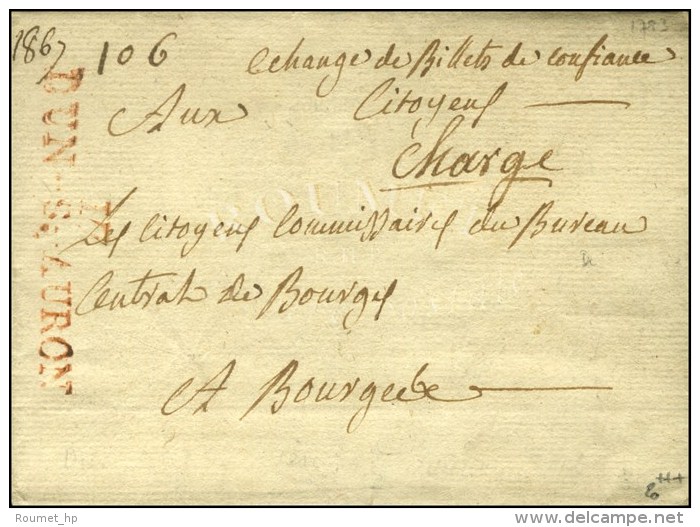 1867 106 Echange de Billets de confiance
1783
Aux Citoyens
Chargé
Les Citoyens Commissaires du Bureau
Central de Bourges
A Bourges
DUN-S-AURON
Roumet_hp
delcampe.net